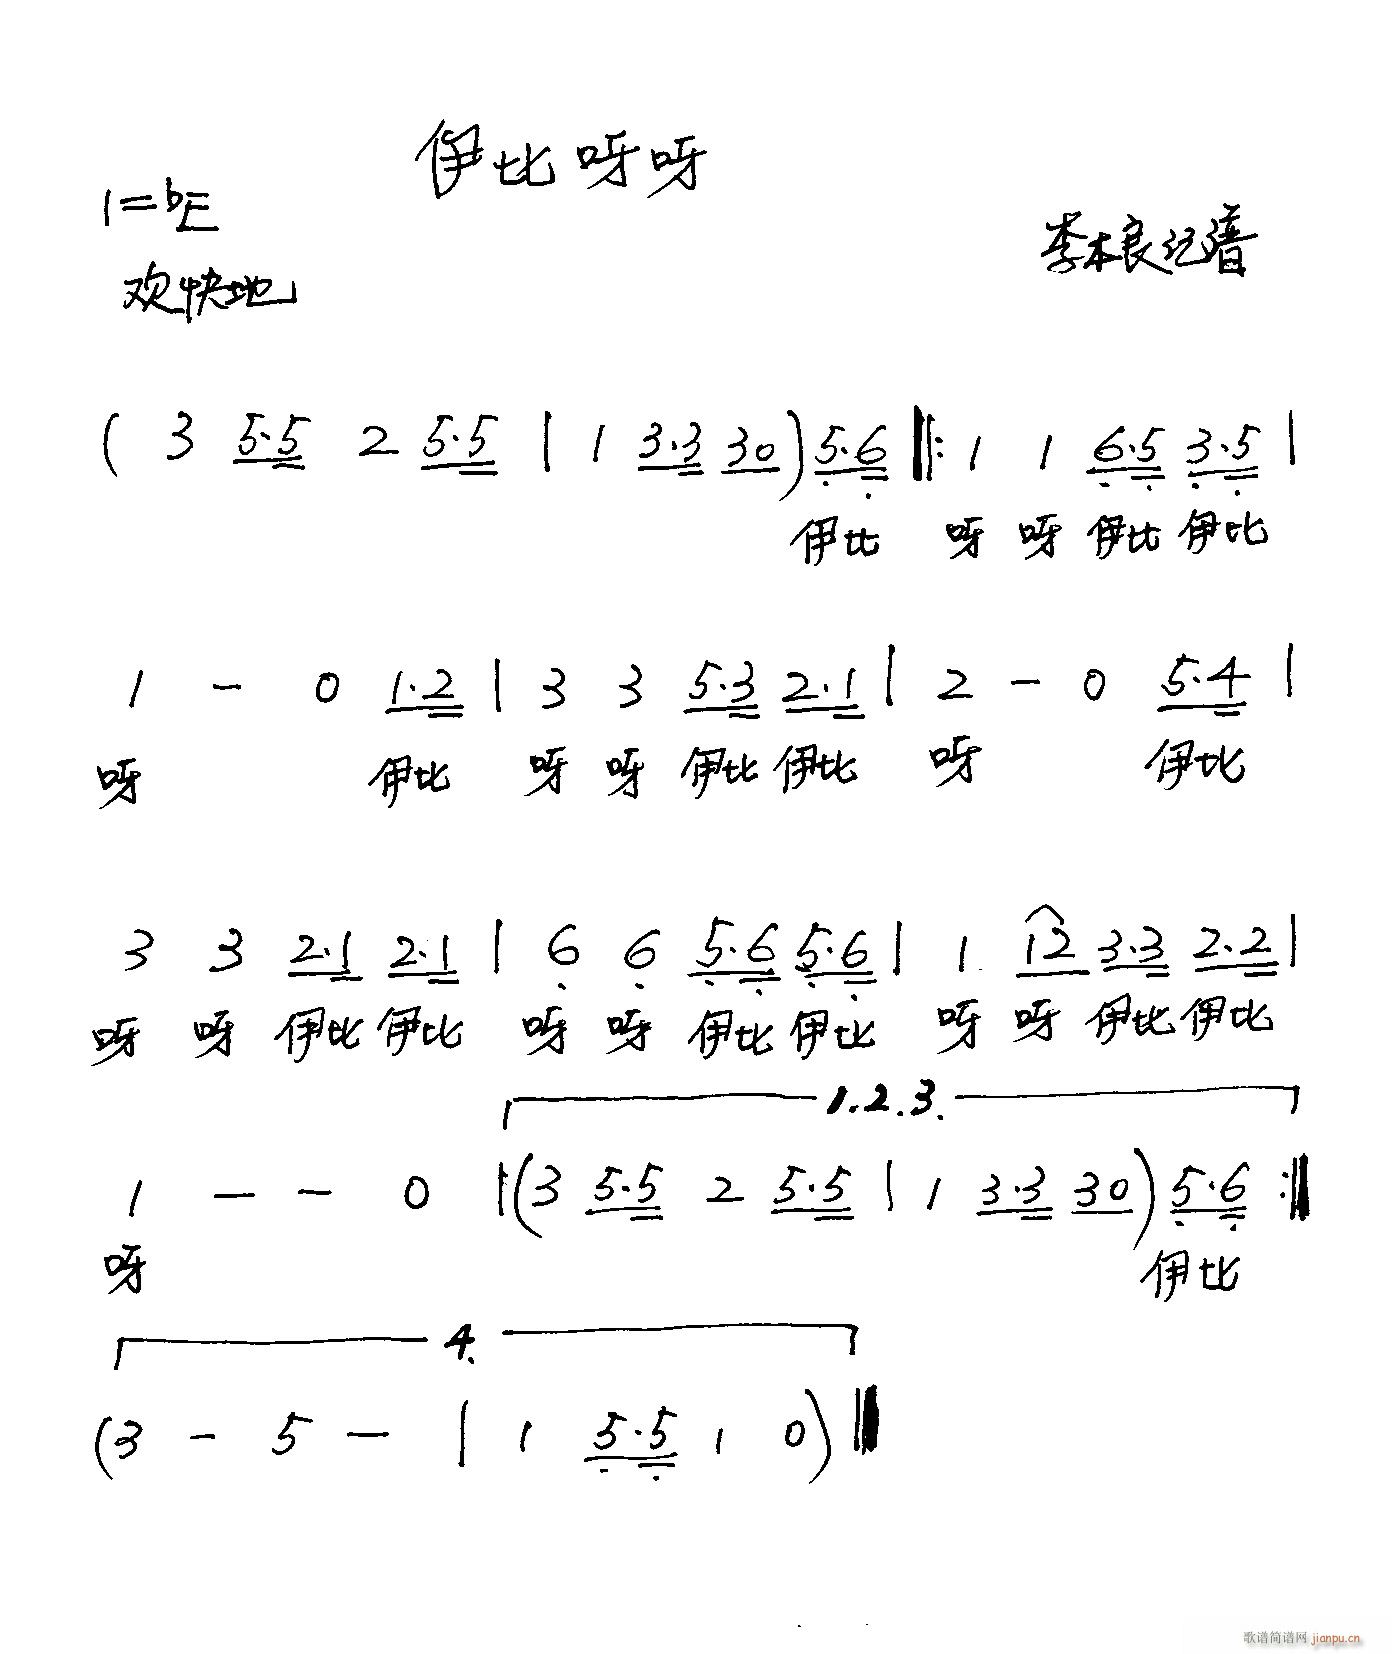 伊比呀呀
1=bE
李本良记谱
欢快地
( 3 5.5 2 5.5 | 1 3.3 30 ) 5.6 ‖: 1 1 6.5 3.5 |
伊比 呀 呀 伊比 伊比
1 - 0 1.2 | 3 3 5.3 2.1 | 2 - 0 5.4 |
呀 伊比 呀 呀 伊比 伊比 呀 伊比
3 3 2.1 2.1 | 6 6 5.6 5.6 | 1 12 3.3 2.2 |
呀 呀 伊比 伊比 呀 呀 伊比 伊比 呀 呀 伊比 伊比
1.2.3.
1 - - 0 | ( 3 5.5 2 5.5 | 1 3.3 30 ) 5.6 :‖
呀 伊比
4.
( 3 - 5 - | 1 5.5 1 0 ) ‖
歌谱简谱网 jianpu.cn